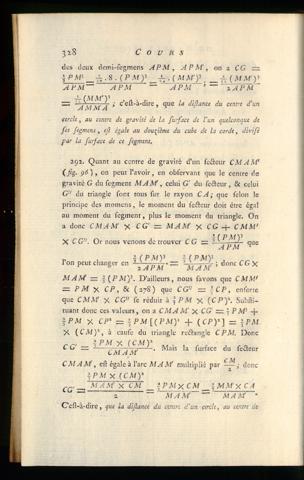 328 COURS
des deux demi-segmens APM, APM', on a CG =
⅔PM³/APM = 1/12 . 8 . (PM)³/APM = 1/12 . (MM')³/APM ; = 1/12 (MM')³/2APM
= 1/12 (MM')³/AMMA ; c'est-à-dire, que la distance du centre d'un
cercle, au centre de gravité de la surface de l'un quelconque de
ses segmens, est égale au douzième du cube de la corde, divisé
par la surface de ce segment.
292. Quant au centre de gravité d'un secteur CMAM'
(fig. 96), on peut l'avoir, en observant que le centre de
gravité G du segment MAM', celui G' du secteur, & celui
G'' du triangle sont tous sur le rayon CA; que selon le
principe des momens, le moment du secteur doit être égal
au moment du segment, plus le moment du triangle. On
a donc CMAM' × CG' = MAM' × CG + CMM'
× CG''. Or nous venons de trouver CG = ⅔(PM)³/APM que
l'on peut changer en ; donc CG ×
MAM' = ⅔(PM)³. D'ailleurs, nous savons que CMM'
= PM × CP, & (278) que CG'' = ⅔CP, ensorte
que CMM' × CG'' se réduit à ⅔PM × (CP)². Substi-
tuant donc ces valeurs, on a CMAM' × CG' =
PM × CP² = ⅔PM[(PM)² + (CP)²] = ⅔PM
× (CM)², à cause du triangle rectangle CPM. Donc
CG' = ⅔PM × (CM)²/CMAM'. Mais la surface du secteur
CMAM', est égale à l'arc MAM' multiplié par CM/2; donc
CG' = ⅔PM × (CM)²/(MAM' × CM/2) = PM × CM/MAM' = ⅔MM' × CA/MAM'.
C'est-à-dire, que la distance du centre d'un cercle, au centre de